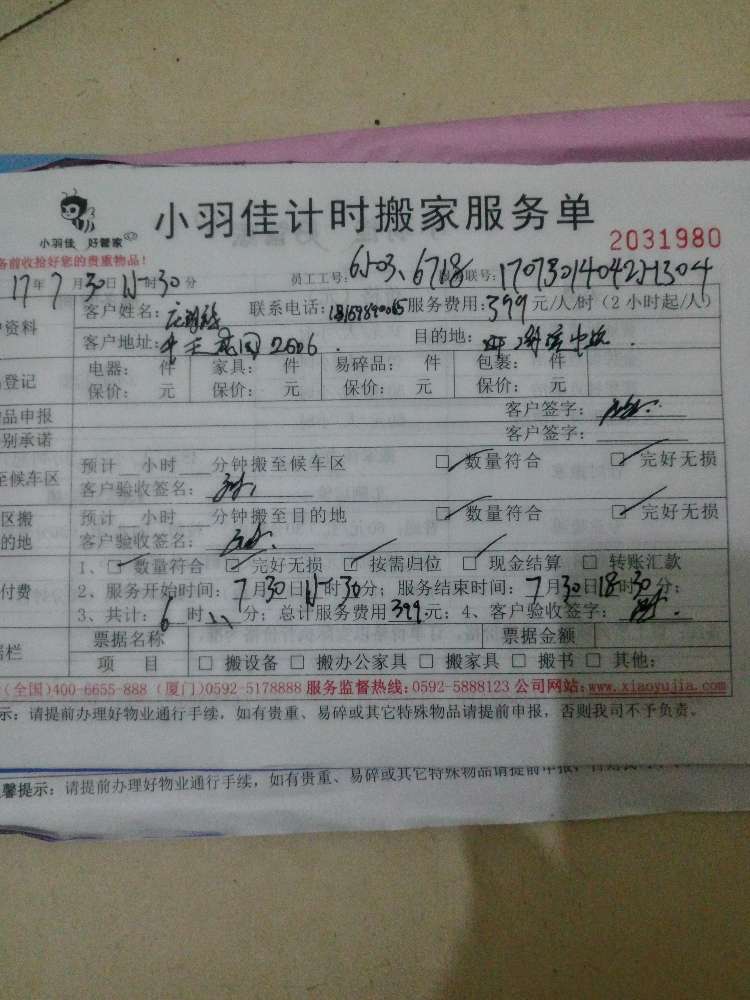 小羽佳计时搬家服务单
小羽佳 好管家
2031980
务前收拾好您的贵重物品！
17年7月30日 时30分 员工工号: 6718 联号:
资料 客户姓名: 联系电话: 服务费用:399元/人/时(2小时起/人)
客户地址: 2606 目的地:
登记 电器: 件 家具: 件 易碎品: 件 包裹: 件
保价: 元 保价: 元 保价: 元 保价: 元
品申报 客户签字:
别承诺 客户签字:
至候车区 预计 小时 分钟搬至候车区 □ 数量符合 □ 完好无损
客户验收签名:
区搬 预计 小时 分钟搬至目的地 □ 数量符合 □ 完好无损
的地 客户验收签名:
付费 1、□ 数量符合 □ 完好无损 □ 按需归位 □ 现金结算 □ 转账汇款
2、服务开始时间: 7月30日 时30分; 服务结束时间: 7月30日18时30分;
3、共计: 6 时 分; 总计服务费用399元; 4、客户验收签字:
栏 票据名称 票据金额
项 目 □ 搬设备 □ 搬办公家具 □ 搬家具 □ 搬书 □ 其他:
(全国)400-6655-888 (厦门)0592-5178888 服务监督热线:0592-5888123 公司网站:www.xiaoyujia.com
示: 请提前办理好物业通行手续，如有贵重、易碎或其它特殊物品请提前申报，否则我司不予负责。
馨提示: 请提前办理好物业通行手续，如有贵重、易碎或其它特殊物品请提前申报，